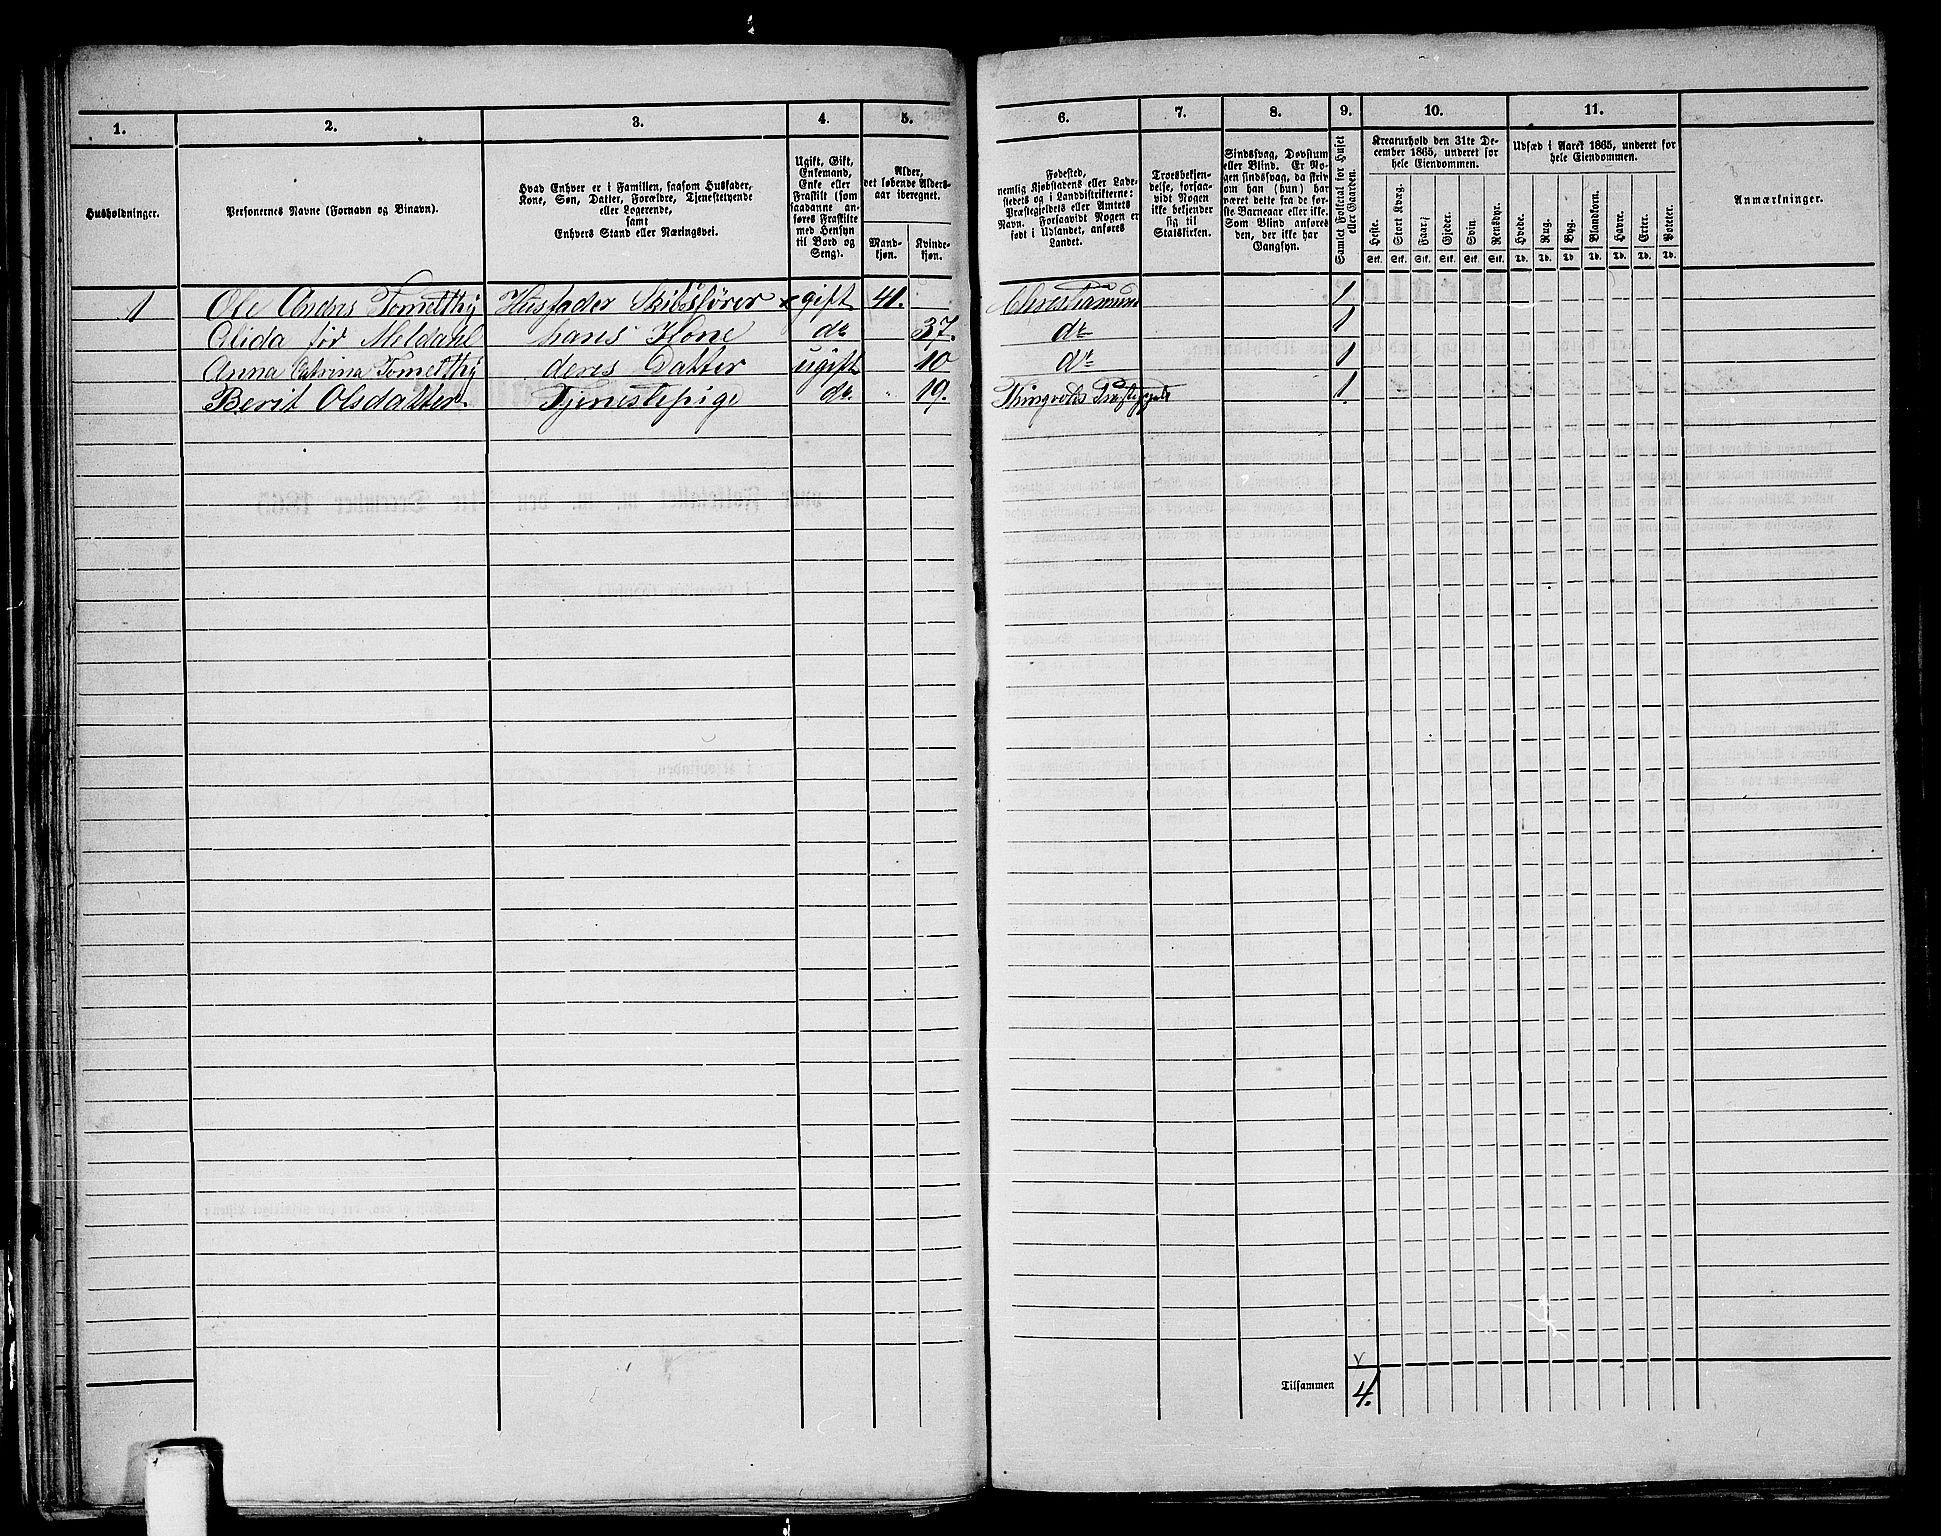 1. 2. 3. 4. 5. 6. 7. 8. 9. 10. 11.
Husholdninger.
Personernes Navne (Fornavn og Binavn).
Hvad Enhver er i Familien, saasom Husfader,
Kone, Søn, Datter, Forældre, Tjenestetyende
eller Logerende,
samt
Enhvers Stand eller Næringsvei.
Ugift, Gift,
Enkemand,
Enke eller
Fraskilt (som
saadanne an-
føres Fraskilte
med Hensyn
til Bord og
Seng).
Alder,
det løbende Alders-
aar iberegnet.
Mand-
kjøn.
Kvinde-
kjøn.
Fødested,
nemlig Kjøbstadens eller Lade-
stedets og i Landdistrikterne:
Præstegjeldets eller Amtets
Navn. Forsaavidt Nogen er
født i Udlandet, anføres
Landet.
Troesbekjen-
delse, forsaa-
vidt Nogen
ikke bekjender
sig til
Statskirken.
Sindssvag, Døvstum
eller Blind. Er No-
gen sindssvag, da skriv
om han (hun) har
været dette fra de før-
ste Barneaar eller ikke.
Som Blind anføres
den, der ikke har
Gangsyn.
Samlet Folketal for Huset
eller Gaarden.
Kreaturhold den 31te De-
cember 1865, underet for
hele Eiendommen.
Heste. Stort Kvæg. Faar. Gjeder. Svin. Rensdyr.
Stk. Stk. Stk. Stk. Stk. Stk.
Udsæd i Aaret 1865, underet for
hele Eiendommen.
Hvede. Rug. Byg. Blandkorn. Havre. Erter. Poteter.
Td. Td. Td. Td. Td. Td. Td.
Anmærkninger.
1 Ole Andres Tometthy Husfader Skibsfører gift 41. Christiansund 1
Alida før Meldahl hans Kone do 37. do 1
Anna Catrina Tometthy deres Datter ugift 10 do 1
Berit Olsdatter. Tjenestepige do. " 19. Thingvolds Præstegjeld 1
Tilsammen 4.